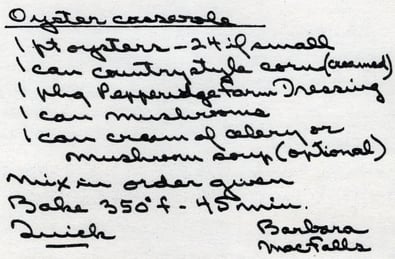 Oyster casserole
1 pt oysters - 24 if small
1 can country style corn (creamed)
1 pkg Pepperidge Farm Dressing
1 can mushrooms
1 can cream of celery or
mushroom soup (optional)
Mix in order given
Bake 350° f - 45 min.
Quick
Barbara
MacFalls